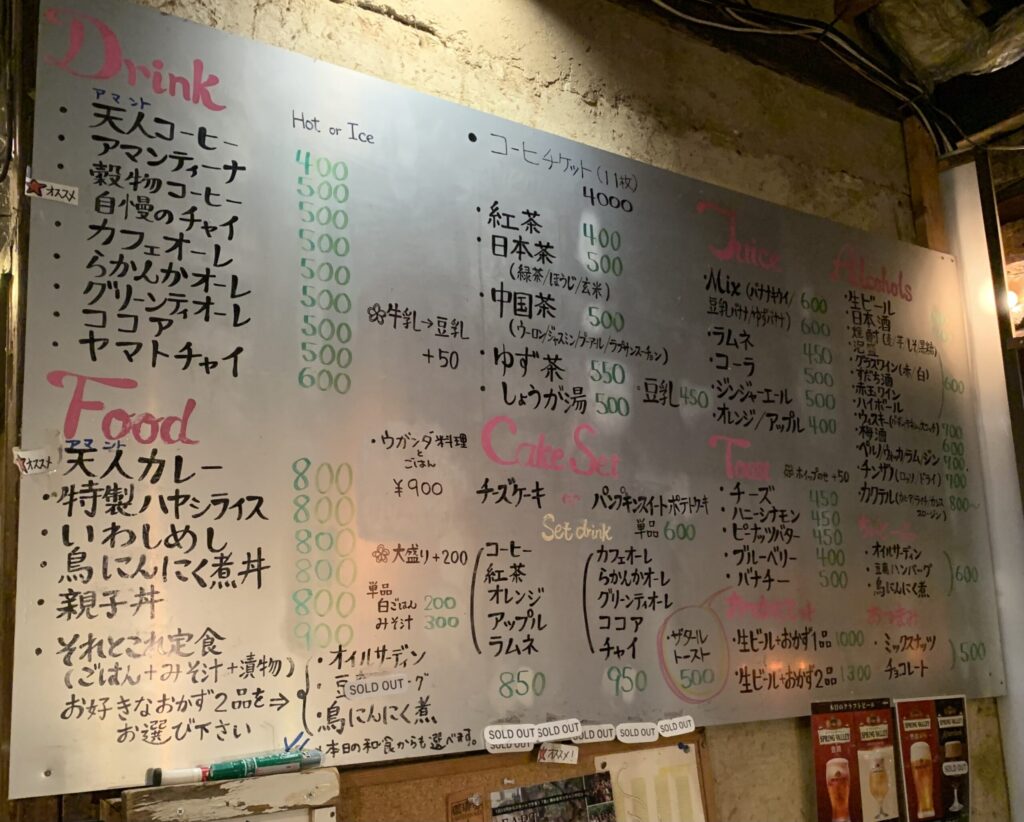 Drink
Hot or Ice
アマント
・天人コーヒー 400
・アマンティーナ 500
・穀物コーヒー 500
オススメ
・自慢のチャイ 500
・カフェオーレ 500
・らかんかオーレ 500
・グリーンティオーレ 500
・ココア 500
・ヤマトチャイ 600
牛乳→豆乳
+50
● コーヒチケット(11枚)
4000
・紅茶 400
・日本茶 500
(緑茶/ほうじ/玄米)
・中国茶 500
(ウーロン/ジャスミン/プーアル/ラプサンスーチョン)
・ゆず茶 550
・しょうが湯 500
・豆乳 450
Juice
・Mix(バナナキウイ/ 600
豆乳バナナ/ゆずバナナ) 600
・ラムネ 450
・コーラ 500
・ジンジャーエール 500
・オレンジ/アップル 400
Alcohols
・生ビール
・日本酒
・泡盛
・グラスワイン(赤/白)
・すだち酒
・赤玉ワイン
・ハイボール
600
・梅酒 600
・チンザノ(ロッソ/ドライ) 700
800~
Food
アマント
オススメ
天人カレー 800
・特製ハヤシライス 800
・いわしめし 800
・鳥にんにく煮丼 800
・親子丼 800
・それとこれ定食 900
(ごはん+みそ汁+漬物)
お好きなおかず2品を⇒
お選び下さい
・オイルサーディン
・豆 SOLD OUT グ
・鳥にんにく煮
・本日の和食からも選べます。
・ウガンダ料理
と
ごはん
¥900
大盛り+200
単品
白ごはん 200
みそ汁 300
Cake Set
チーズケーキ or パンプキンスイートポテトケーキ
Set drink
単品 600
コーヒー
紅茶
オレンジ
アップル
ラムネ
850
カフェオーレ
らかんかオーレ
グリーンティオーレ
ココア
チャイ
950
ホイップのせ+50
・チーズ 450
・ハニーシナモン 450
・ピーナッツバター 450
・ブルーベリー 400
・バナチー 500
・ザタール
トースト
500
・生ビール+おかず1品 1000
・生ビール+おかず2品 1300
・オイルサーディン
・豆腐ハンバーグ
・鳥にんにく煮
600
おつまみ
・ミックスナッツ
・チョコレート
500
SOLD OUT
SOLD OUT
SOLD OUT
SOLD OUT
SOLD OUT
SOLD OUT
オススメ!
本日のクラフトビール
SPRING VALLEY
SPRING VALLEY
SPRING VALLEY
SOLD OUT